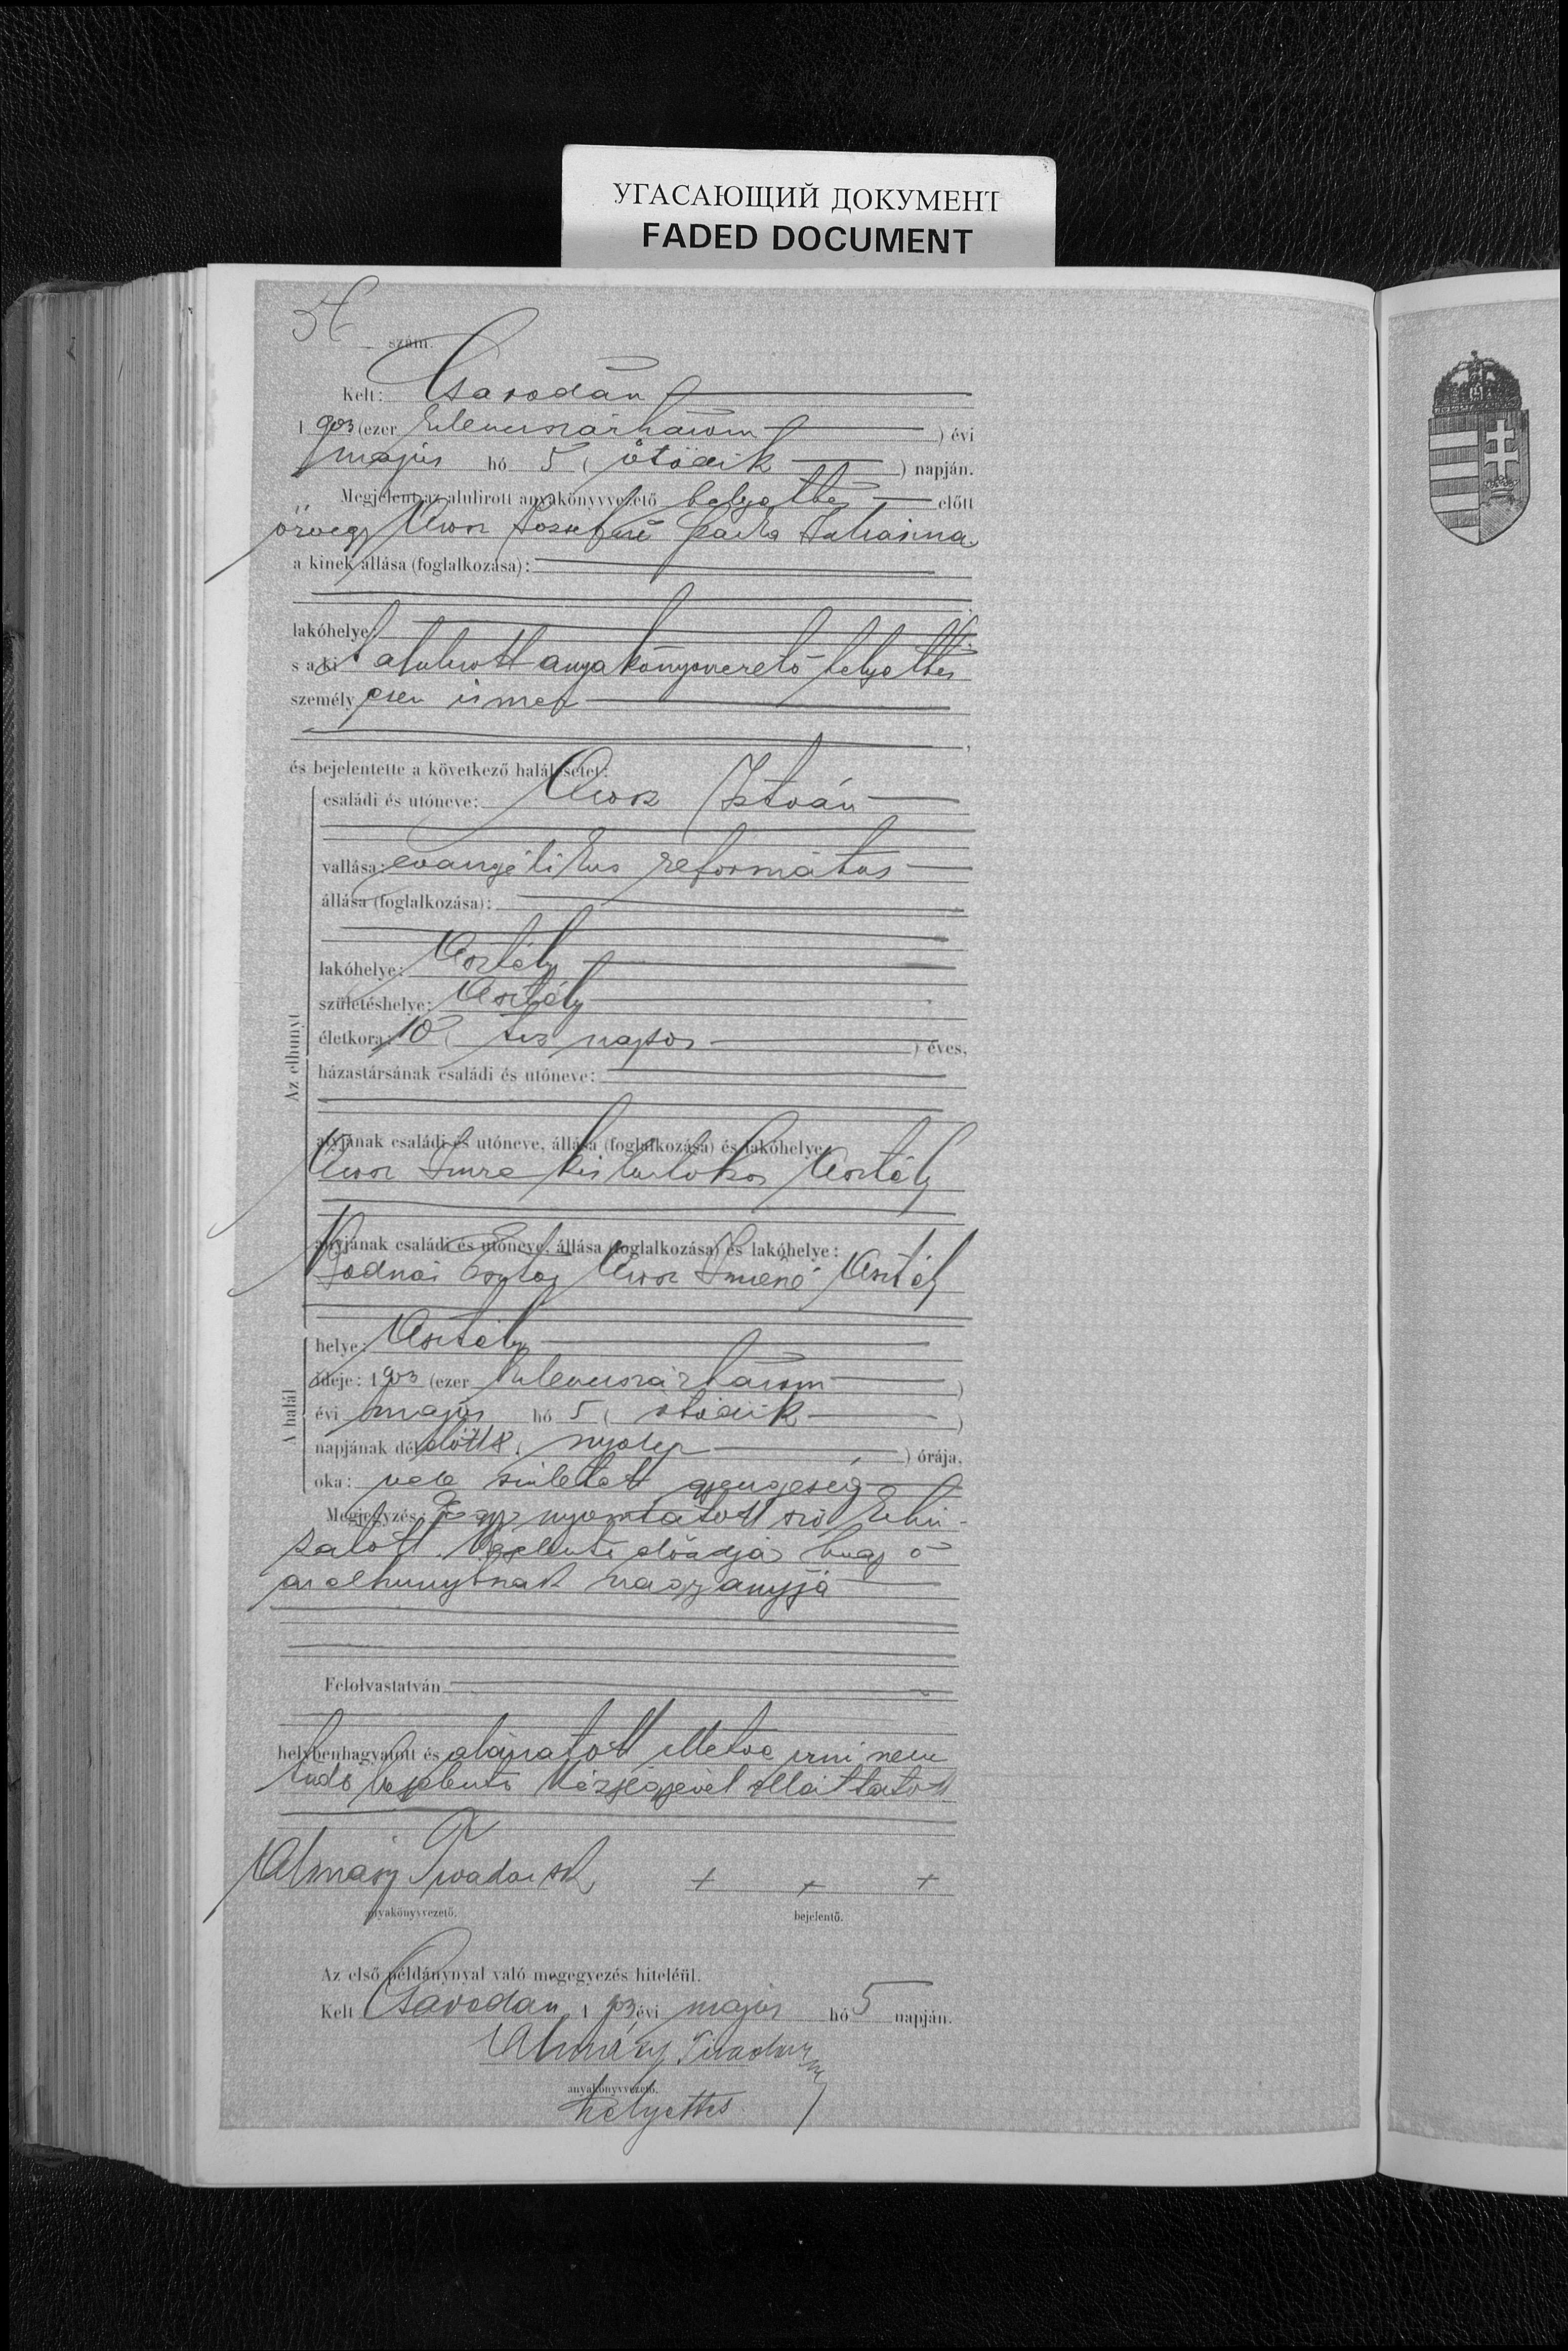 УГАСАЮЩИЙ ДОКУМЕНТ
FADED DOCUMENT
szám.
Kelt: Csarodán
1903 (ezer kilencszázhárom) évi
május hó 5 (ötödik) napján.
Megjelent az alulirott anyakönyvvezető helyettes előtt
özvegy
a kinek állása (foglalkozása):
lakóhelye:
s a kit alulirott anyakönyvvezető helyettes
személyesen ismer
és bejelentette a következő halálesetet:
Az elhunyt
családi és utóneve: István
vallása: evangélikus református
állása (foglalkozása):
lakóhelye: Asztély
születéshelye: Asztély
életkora: 10 (tiz napos) éves,
házastársának családi és utóneve:
atyjának családi és utóneve, állása (foglalkozása) és lakóhelye:
Imre kisbirtokos Asztély
anyjának családi és utóneve, állása (foglalkozása) és lakóhelye:
Imréné Asztély
A halál
helye: Asztély
ideje: 1903 (ezer kilencszázhárom)
évi május hó 5 (ötödik)
napjának délelőtt 8 (nyolcz) órája,
oka: vele születet gyengeség
Megjegyzés: Egy nyomtatott szó kihú-
zatott. Bejelentő előadja hogy ő
az elhunytnak nagyanyja
Felolvastatván
helybenhagyatott és aláiratott illetve irni nem
tudó bejelentő kézjegyével elláttatott
Almásy Tivadar sk + + +
anyakönyvvezető. bejelentő.
Az első példánynyal való megegyezés hiteléül.
Kelt Csarodán 1903 évi május hó 5 napján.
Almásy Tivadar
anyakönyvvezető.
helyettes